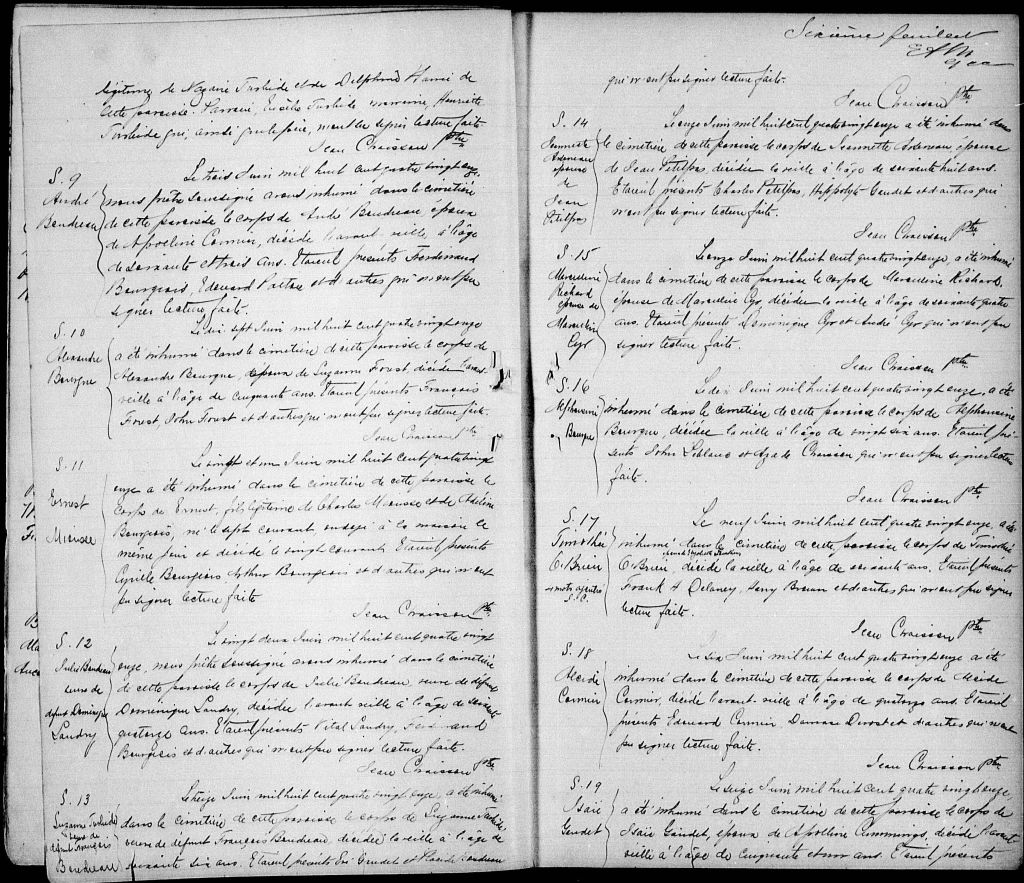 légitime de Nazaire Turbide et de Delphine de
cette paroisse. Parrain, Eusèbe Turbide marraine, Henriette
Turbide qui, ainsi que le père, n'ont su signer lecture faite.
Jean Chaisson Ptre
S. 9
André
Boudreau
Le trois Juin mil huit cent quatre vingt onze,
nous prêtre soussigné avons inhumé dans le cimetière
de cette paroisse le corps de André Boudreau, époux
de Apolline Cormier, décédé l'avant-veille à l'âge
de soixante et trois ans. Etaient présents Ferdinand
Bourgeois, Edouard et d'autres qui n'ont pu
signer lecture faite.
S. 10
Alexandre
Bourque
Le dix sept Juin mil huit cent quatre vingt onze
a été inhumé dans le cimetière de cette paroisse le corps de
Alexandre Bourque, époux de Suzanne Forest décédé l'avant
veille à l'âge de cinquante ans. Etaient présents François
Forest John Forest et d'autres qui n'ont pu signer lecture faite.
Jean Chaisson Ptre
S. 11
Ernest
Le vingt et un Juin mil huit cent quatre vingt
onze a été inhumé dans le cimetière de cette paroisse le
corps de Ernest, fils légitime de Charles et de Adeline
Bourgeois, né le sept courant ondoyé à la maison le
même jour et décédé le vingt courant. Etaient présents
Cyrille Bourgeois Arthur Bourgeois et d'autres qui n'ont
pu signer lecture faite
Jean Chaisson Ptre
S. 12
Julie Boudreau
veuve de
défunt Dominique
Landry
Le vingt deux Juin mil huit cent quatre vingt
onze, nous prêtre soussigné avons inhumé dans le cimetière
de cette paroisse le corps de Julie Boudreau, veuve de défunt
Dominique Landry, décédée l'avant veille à l'âge de soixante
quatorze ans. Etaient présents Vital Landry,
Bourgeois et d'autres qui n'ont pu signer lecture faite.
Jean Chaisson Ptre
S. 13
Suzanne Turbide
veuve de
défunt François
Boudreau
Le treize Juin mil huit cent quatre vingt onze, a été inhumé
dans le cimetière de cette paroisse le corps de Suzanne Turbide
veuve de défunt François Boudreau, décédée la veille à l'âge de
soixante six ans. Etaient présents Gaudet et Boudreau
Sixième feuillet
qui n'ont pu signer lecture faite.
Jean Chaisson Ptre
S. 14
Jeannette
Arseneau
épouse
de
Jean
Petitpas
Le onze Juin mil huit cent quatre vingt onze a été inhumé dans
le cimetière de cette paroisse le corps de Jeannette Arseneau épouse
de Jean Petitpas, décédée la veille à l'âge de soixante huit ans.
Etaient présents Charles Petitpas, Hippolyte Gaudet et d'autres qui
n'ont pu signer lecture faite.
Jean Chaisson Ptre
S. 15
Marcelline
Richard
épouse de
Marcelin
Cyr
Le onze Juin mil huit cent quatre vingt onze, a été inhumé
dans le cimetière de cette paroisse le corps de Marcelline Richard,
épouse de Marcelin Cyr, décédée la veille à l'âge de soixante quatre
ans. Etaient présents Dominique Cyr et André Cyr qui n'ont pu
signer lecture faite.
Jean Chaisson Ptre
S. 16
Alphonsine
Bourque
Le dix Juin mil huit cent quatre vingt onze, a été
inhumé dans le cimetière de cette paroisse le corps de Alphonsine
Bourque, décédée la veille à l'âge de vingt six ans. Etaient pré-
sents John Leblanc et Chaisson qui n'ont pu signer lecture
faite.
Jean Chaisson Ptre
S. 17
Timothée
O'Brien
mots ajoutés
J. C.
Le neuf Juin mil huit cent quatre vingt onze, a été
inhumé dans le cimetière de cette paroisse le corps de Timothée
O'Brien, décédé la veille à l'âge de soixante ans. Etaient présents
Frank H Delaney, Henry Brown et d'autres qui n'ont pu signer
lecture faite.
Jean Chaisson Ptre
S. 18
Alcide
Cormier
Le six Juin mil huit cent quatre vingt onze a été
inhumé dans le cimetière de cette paroisse le corps de Alcide
Cormier, décédé l'avant-veille à l'âge de quatorze ans. Etaient
présents Edouard Cormier Damase et d'autres qui n'ont
pu signer lecture faite.
Jean Chaisson Ptre
S. 19
Isaïe
Gaudet
Le seize Juin mil huit cent quatre vingt onze
a été inhumé dans le cimetière de cette paroisse le corps de
Isaïe Gaudet, époux de Apolline Cummings, décédé l'avant
veille à l'âge de cinquante et un ans. Etaient présents